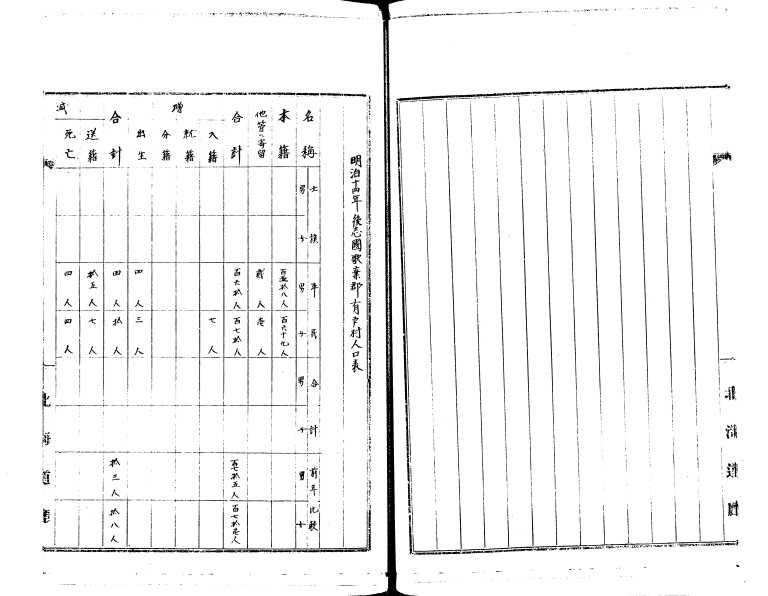 明治十四年後志國歌棄郡有戸村人口表
名稱 士族 男 女 平民 男 女 合計 男 女 前年比較 男 女
本籍 百五拾八人 百六十九人
他管ヘ寄留 貳人 壱人
合計 百六拾人 百七拾人 百七拾五人 百七拾壱人
增
入籍 七人
就籍
分籍
出生 四人 三人
合計 四人 拾人 拾三人 拾八人
减
送籍 拾五人 七人
死亡 四人 四人
北海道廳
北海道廳